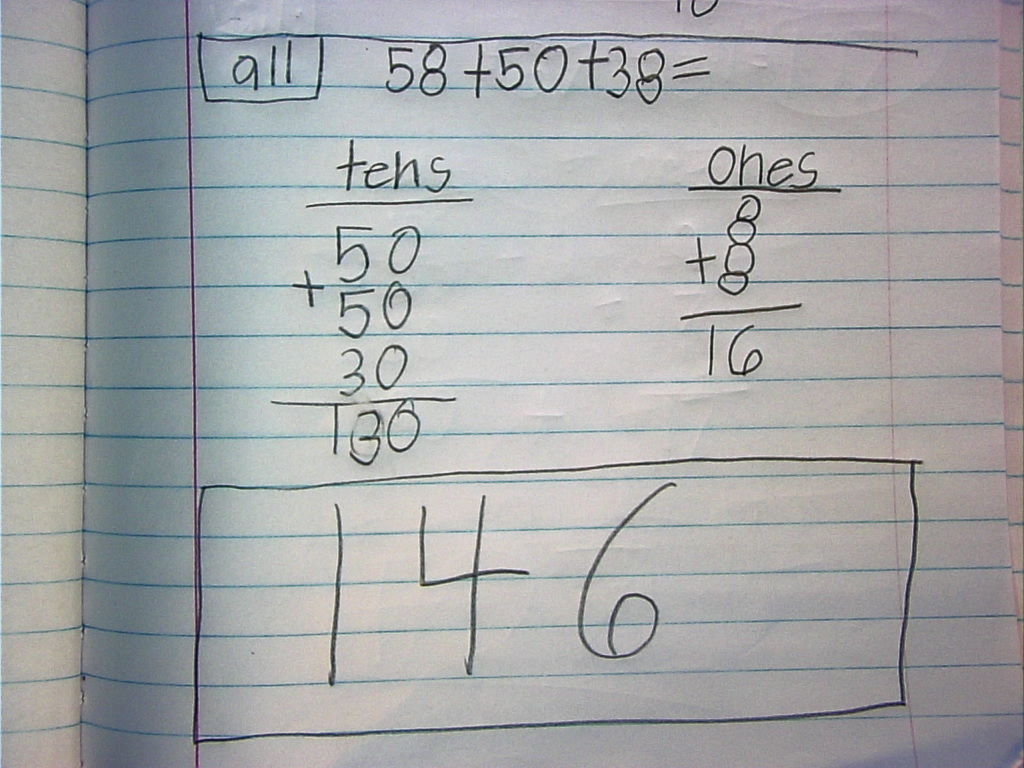 10
all 58+50+38=
tens
50
+ 50
30
130
ones
8
+8
16
146